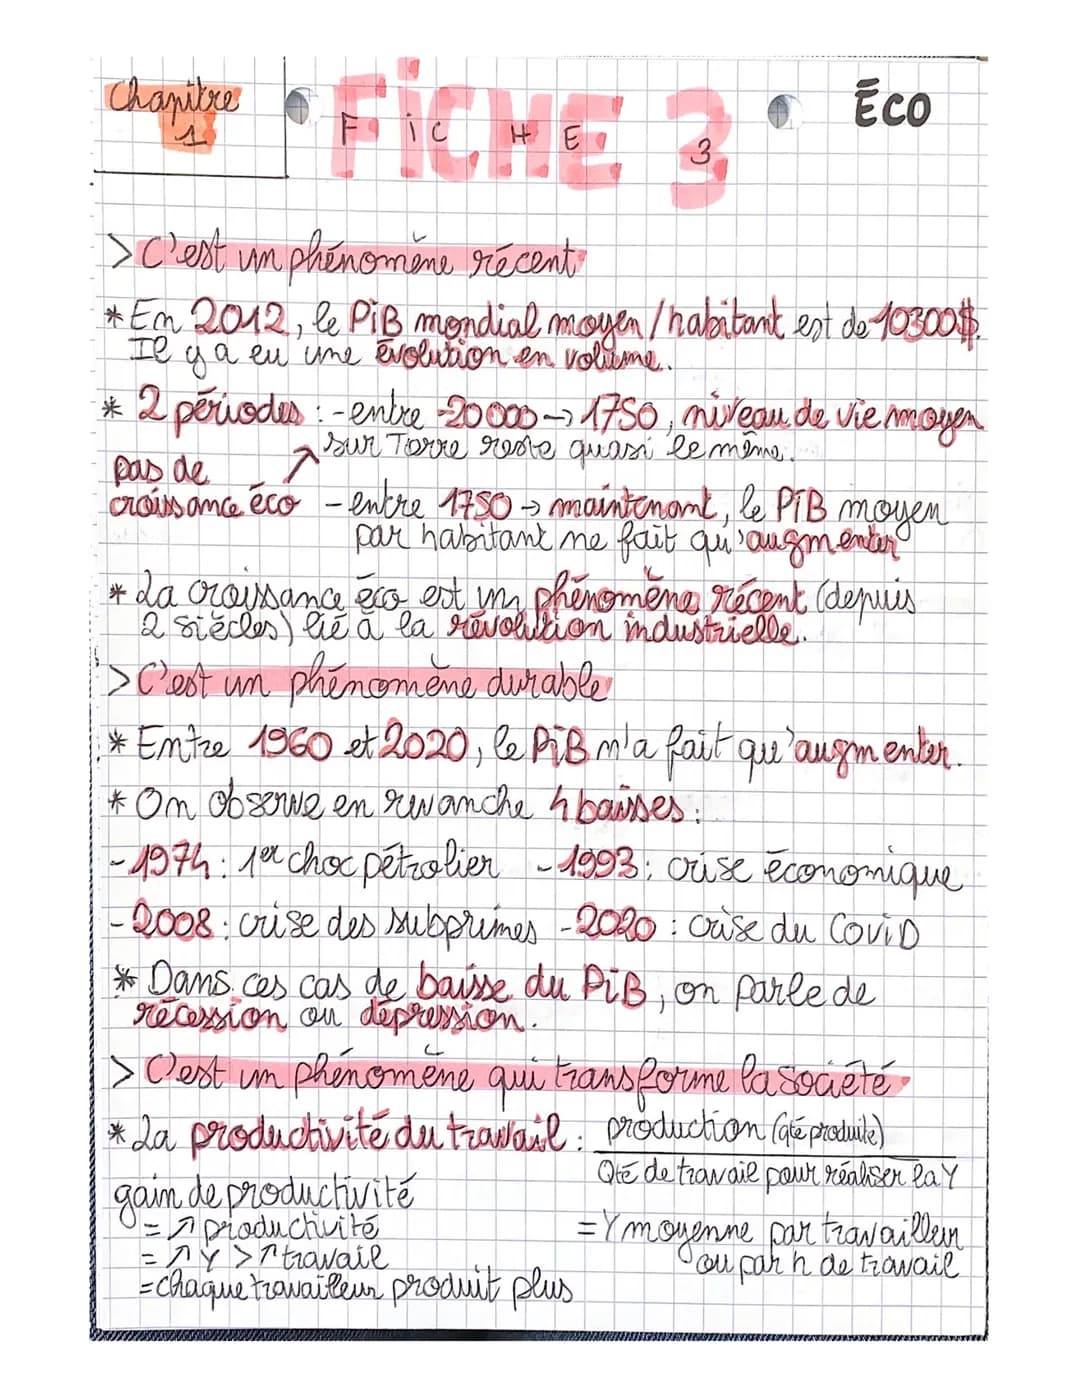 Chapitre
1
FiCHE 3
F i C H E 3
Éco
> C'est un phénomène récent
* En 2012, le PiB mondial moyen / habitant est de 10300$.
Il y a eu une évolution en volume.
* 2 périodes : - entre -20 000 → 1750, niveau de vie moyen
sur Terre reste quasi le même.
pas de ↗
croissance éco - entre 1750 → maintenant, le PiB moyen
par habitant ne fait qu'augmenter
* La croissance éco est un phénomène récent (depuis
2 siècles) lié à la révolution industrielle.
> C'est un phénomène durable
* Entre 1960 et 2020, le PiB n'a fait qu'augmenter.
* On observe en revanche 4 baisses :
- 1974 : 1er choc pétrolier - 1993 : crise économique
- 2008 : crise des subprimes - 2020 : crise du CoviD
* Dans ces cas de baisse du PiB, on parle de
récession ou dépression.
> C'est un phénomène qui transforme la société
* La productivité du travail : production (qté produite)
Qté de travail pour réaliser la Y
gain de productivité
= ↗ productivité = Y moyenne par travailleur
= ↗ Y > ↗ travail ou par h de travail
= chaque travailleur produit plus